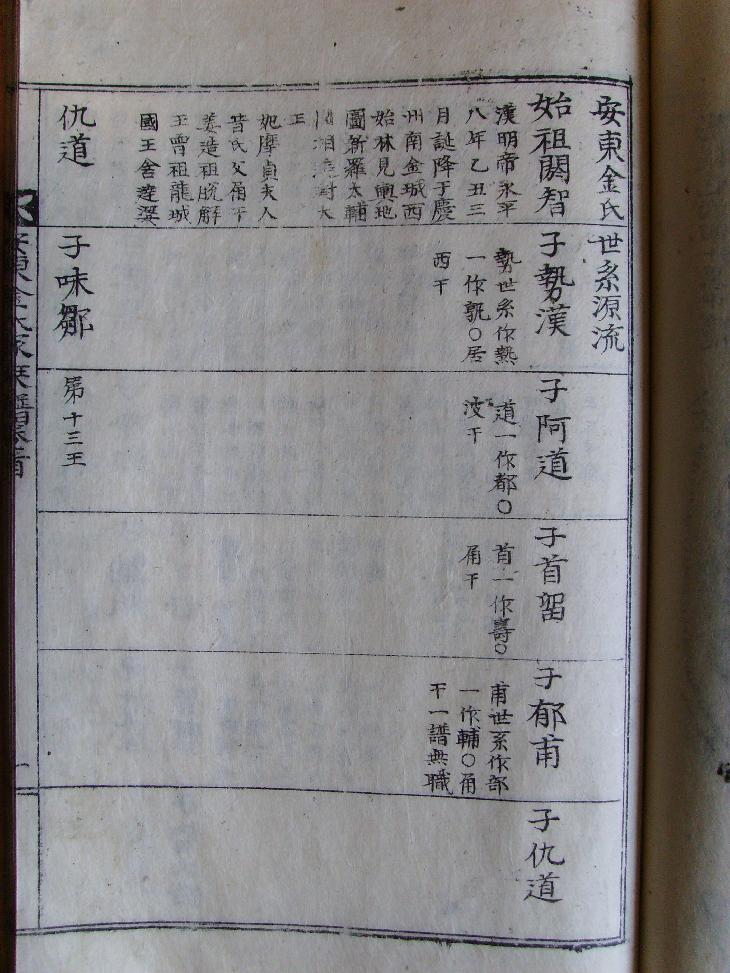 安東金氏世系源流
始祖閼智
漢明帝永平
八年乙丑三
月誕降于慶
州南金城西
始林見輿地
圖新羅太輔
大
王
妃摩貞夫人
昔氏父角干
王曾祖龍城
國王含達婆
子勢漢
勢世系作熱
一作郭○居
西干
子阿道
道一作都○
波干
子首留
首一作壽○
角干
子郁甫
甫世系作部
一作輔○角
干一譜無職
子仇道
仇道
子味鄒
第十三王